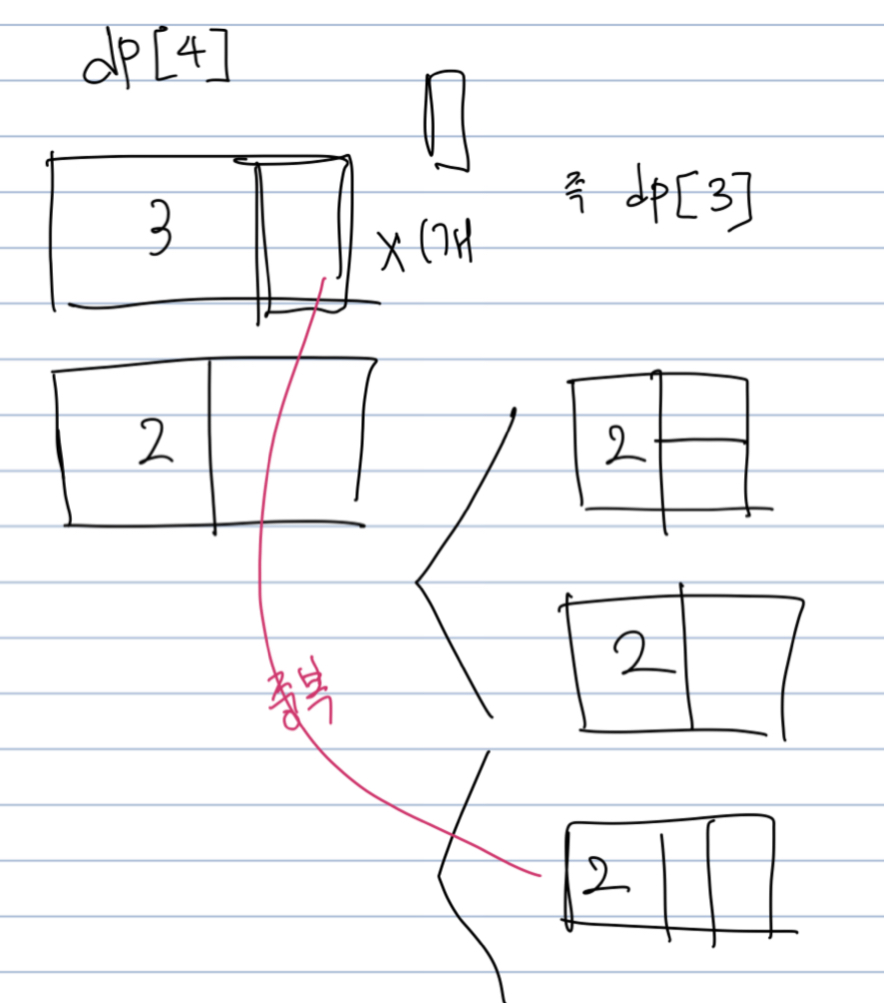 dp[4]
3
x 1개
즉 dp[3]
2
2
2
중복
2